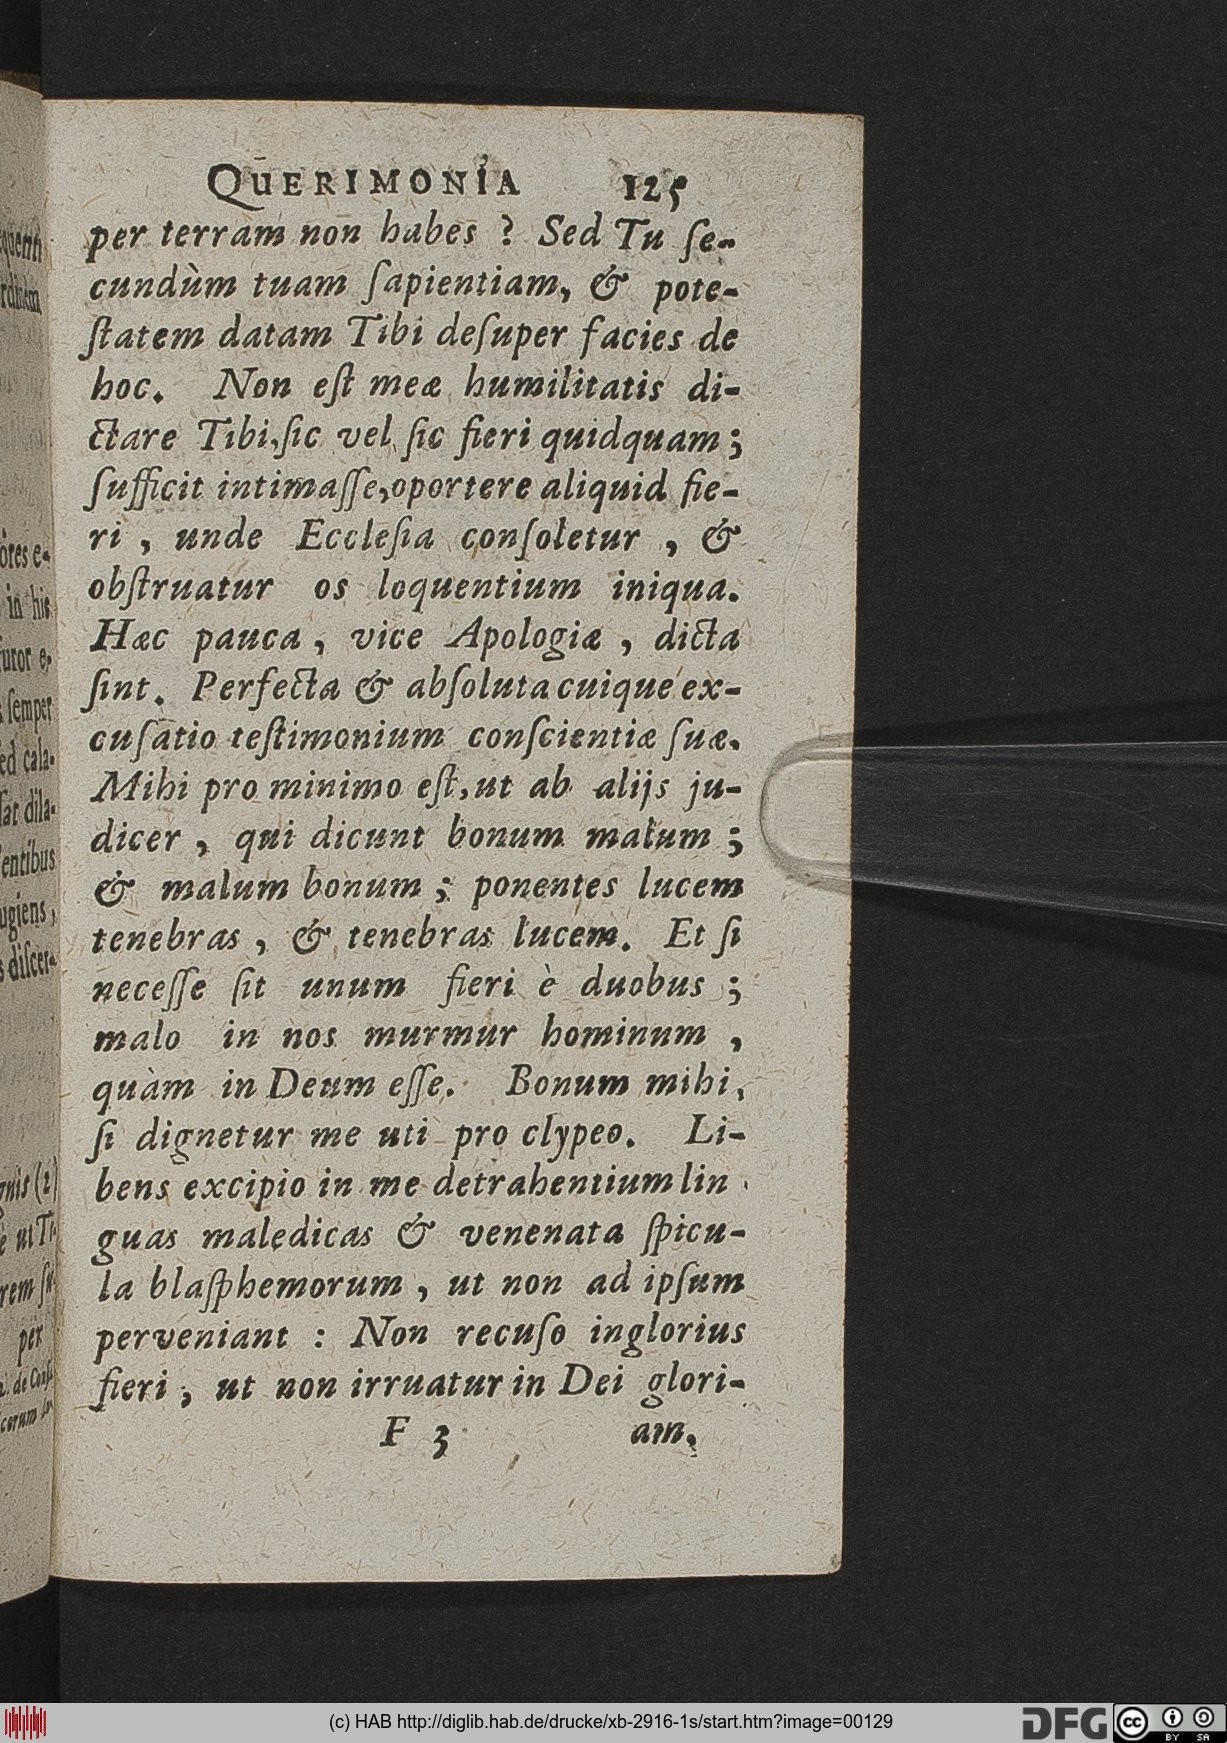 QUERIMONIA 125
per terram non habes ? Sed Tu ſe-
cundùm tuam ſapientiam, & pote-
ſtatem datam Tibi deſuper facies de
hoc. Non eſt meæ humilitatis di-
ctare Tibi,ſic vel ſic fieri quidquam;
ſufficit intimaſſe,oportere aliquid fie-
ri , unde Eccleſia conſoletur , &
obſtruatur os loquentium iniqua.
Hæc pauca , vice Apologiæ , dicta
ſint. Perfecta & abſoluta cuique ex-
cuſatio teſtimonium conſcientiæ ſuæ.
Mihi pro minimo eſt,ut ab alijs ju-
dicer , qui dicunt bonum malum ;
& malum bonum ; ponentes lucem
tenebras , & tenebras lucem. Et ſi
neceſſe ſit unum fieri è duobus ;
malo in nos murmur hominum ,
quàm in Deum eſſe. Bonum mihi,
ſi dignetur me uti pro clypeo. Li-
bens excipio in me detrahentium lin
guas maledicas & venenata ſpicu-
la blaſphemorum , ut non ad ipſum
perveniant : Non recuſo inglorius
fieri ; ut non irruatur in Dei glori-
F 3 am,
(c) HAB http://diglib.hab.de/drucke/xb-2916-1s/start.htm?image=00129
DFG
cc BY SA